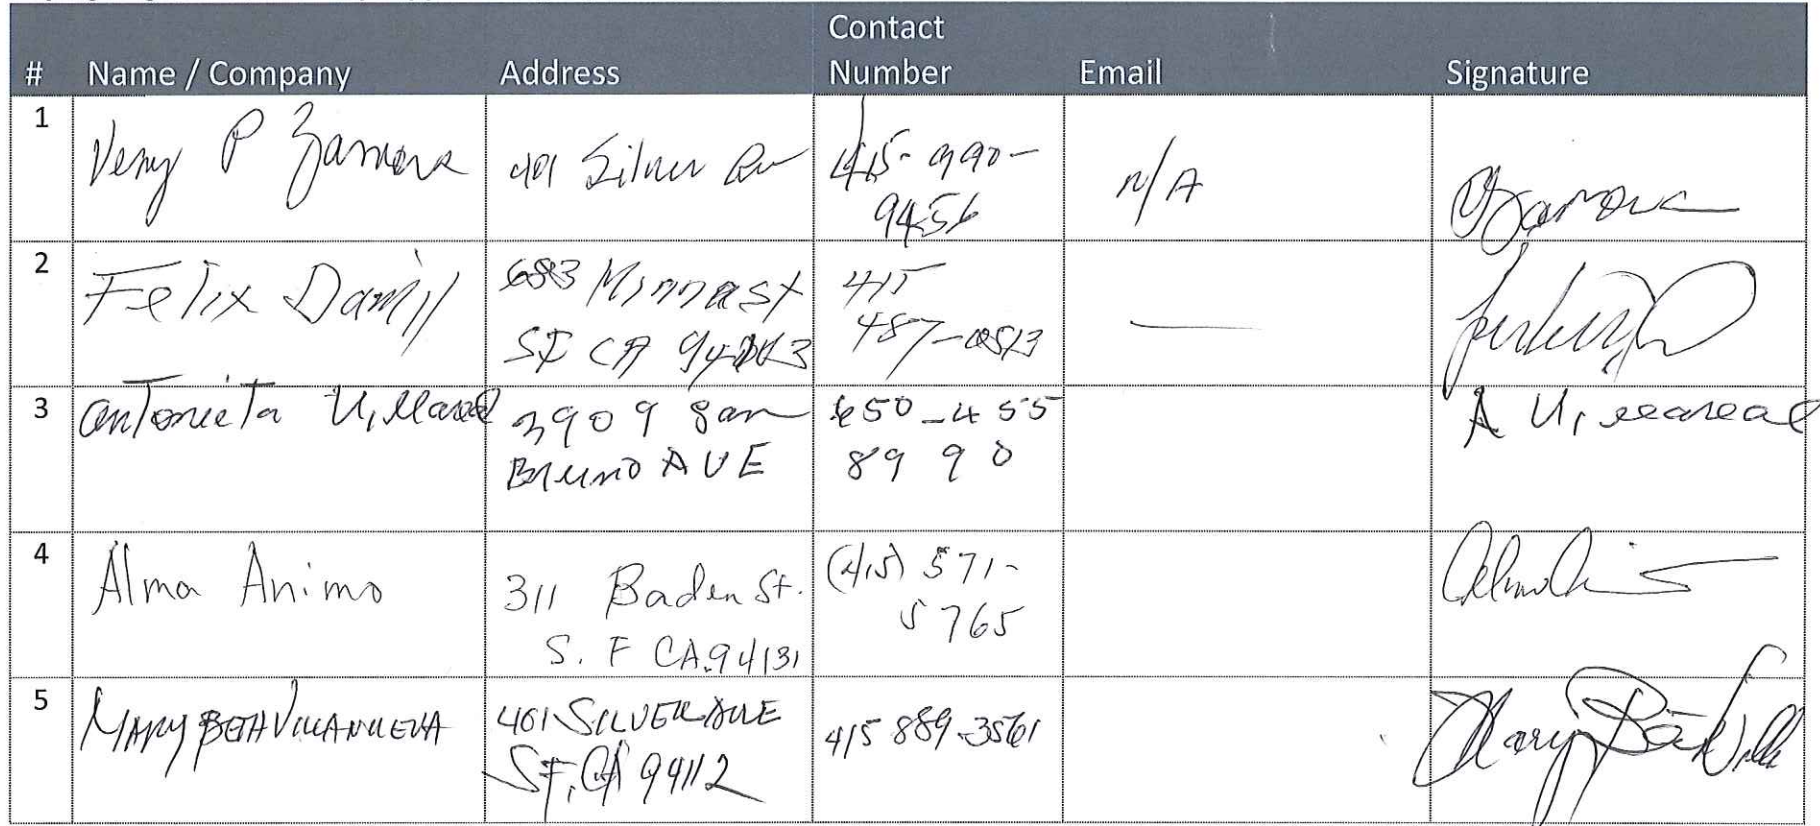 Contact
# Name / Company Address Number Email Signature
1 Veny P Zamora 401 Silver Av 415-990-
9456 N/A Zamora
2 Felix Damil 683 Minna St
SF CA 415
487-0513 —
3 Antonieta Villareal 3909 San
Bruno AVE 650-455
8990 A Villareal
4 Alma Animo 311 Baden St.
S. F CA. 94131 (415) 571-
5765
5 MARY BETH VILLANUEVA 401 SILVER AVE
SF, CA 94112 415 889-3561 Mary Beth Villa